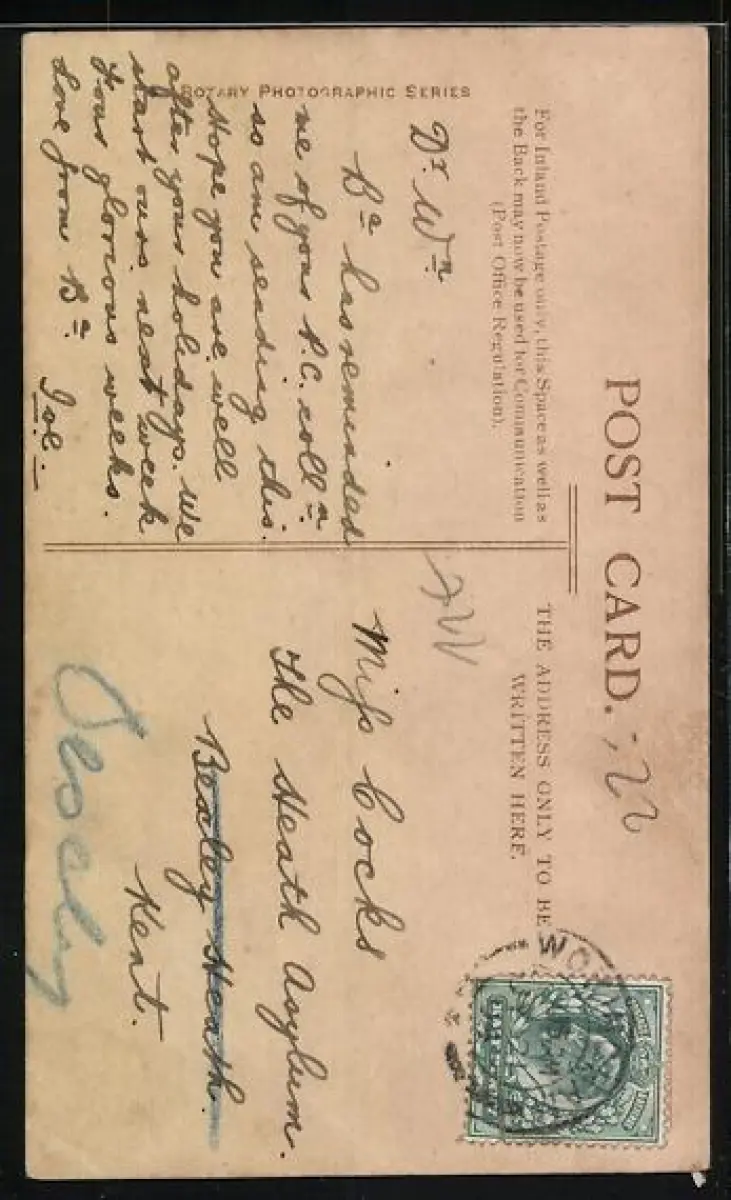 ROTARY PHOTOGRAPHIC SERIES
POST CARD.
For Inland Postage only, this Space as well as
the Back may now be used for Communication
(Post Office Regulation).
THE ADDRESS ONLY TO BE
WRITTEN HERE.
Dr. Wn
Ba has reminded
me of your P.C. colln
so am sending this.
Hope you are well
after your holidays. We
start ours next week
four glorious weeks.
Love from Ba. Joe.
Miss Cocks
The Heath Asylum.
Bexley Heath.
Kent.
WO